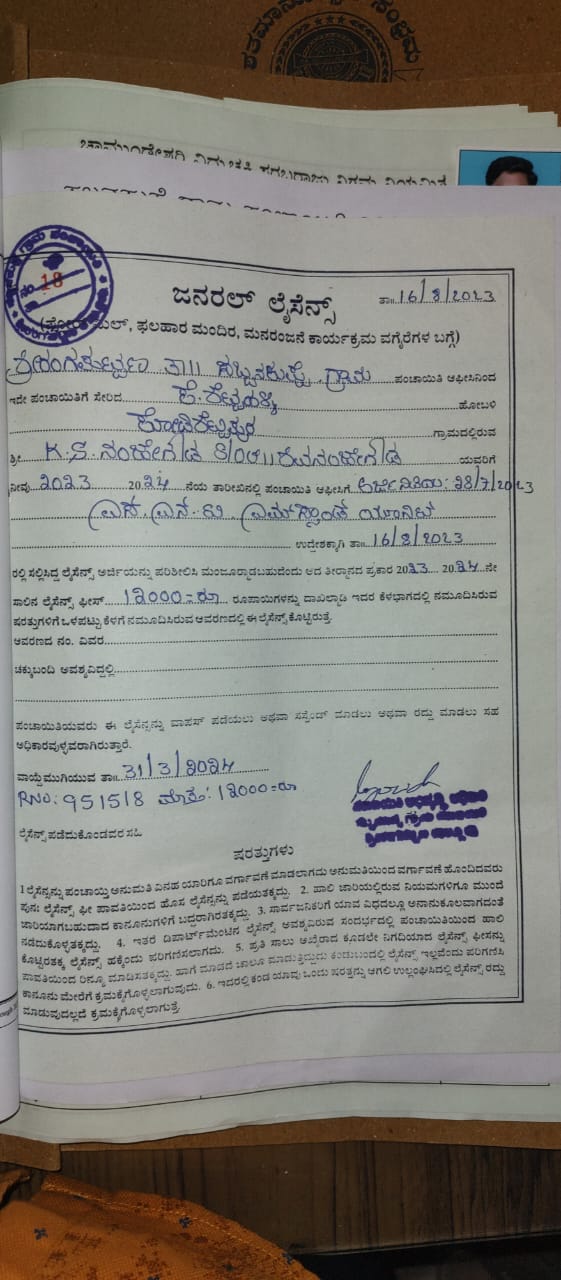 ಶತಮಾನೋತ್ಸವ ಸಂಭ್ರಮ
ನಂ. 18
ಜನರಲ್ ಲೈಸೆನ್ಸ್
ತಾ॥ 16/8/2023
ಫಲಹಾರ ಮಂದಿರ, ಮನರಂಜನೆ ಕಾರ್ಯಕ್ರಮ ವಗೈರೆಗಳ ಬಗ್ಗೆ)
ಶ್ರೀರಂಗಪಟ್ಟಣ ತಾ॥ ಗ್ರಾಮ ಪಂಚಾಯಿತಿ ಆಫೀಸಿನಿಂದ
ಇದೇ ಪಂಚಾಯಿತಿಗೆ ಸೇರಿದ ಕೆ. ಶೆಟ್ಟಹಳ್ಳಿ ಹೋಬಳಿ
ಗ್ರಾಮದಲ್ಲಿರುವ
ಶ್ರೀ K.S. ನಂಜೇಗೌಡ S/O॥ ಯವರಿಗೆ
ನೀವು 2023 2024 ನೆಯ ತಾರೀಖಿನಲ್ಲಿ ಪಂಚಾಯಿತಿ ಆಫೀಸಿಗೆ ಅರ್ಜಿ ದಿನಾಂಕ: 28/7/2023
ಎಸ್.ಎನ್.
ಉದ್ದೇಶಕ್ಕಾಗಿ ತಾ॥ 16/8/2023
ರಲ್ಲಿ ಸಲ್ಲಿಸಿದ್ದ ಲೈಸೆನ್ಸ್ ಅರ್ಜಿಯನ್ನು ಪರಿಶೀಲಿಸಿ ಮಂಜೂರ್‍ಮಾಡಬಹುದೆಂದು ಆದ ತೀರ್ಮಾನದ ಪ್ರಕಾರ 2023 2024 ನೇ
ಸಾಲಿನ ಲೈಸೆನ್ಸ್ ಫೀಸ್ 12000=ರೂ ರೂಪಾಯಿಗಳನ್ನು ದಾಖಲ್ಮಾಡಿ ಇದರ ಕೆಳಭಾಗದಲ್ಲಿ ನಮೂದಿಸಿರುವ
ಷರತ್ತುಗಳಿಗೆ ಒಳಪಟ್ಟು ಕೆಳಗೆ ನಮೂದಿಸಿರುವ ಆವರಣದಲ್ಲಿ ಈ ಲೈಸೆನ್ಸ್ ಕೊಟ್ಟಿರುತ್ತೆ.
ಆವರಣದ ನಂ. ವಿವರ
ಚಕ್ಕುಬಂದಿ ಅವಶ್ಯವಿದ್ದಲ್ಲಿ
ಪಂಚಾಯಿತಿಯವರು ಈ ಲೈಸೆನ್ಸನ್ನು ವಾಪಸ್ ಪಡೆಯಲು ಅಥವಾ ಸಸ್ಪೆಂಡ್ ಮಾಡಲು ಅಥವಾ ರದ್ದು ಮಾಡಲು ಸಹ
ಅಧಿಕಾರವುಳ್ಳವರಾಗಿರುತ್ತಾರೆ.
ವಾಯ್ದೆಮುಗಿಯುವ ತಾ॥ 31/3/2024
RNO: 951518 ಮೊತ್ತ: 12000=ರೂ
ಲೈಸೆನ್ಸ್ ಪಡೆದುಕೊಂಡವರ ಸಹಿ
ಷರತ್ತುಗಳು
1 ಲೈಸೆನ್ಸನ್ನು ಪಂಚಾಯ್ತಿ ಅನುಮತಿ ವಿನಹ ಯಾರಿಗೂ ವರ್ಗಾವಣೆ ಮಾಡಲಾಗದು ಅನುಮತಿಯಿಂದ ವರ್ಗಾವಣೆ ಹೊಂದಿದವರು
ಪುನಃ ಲೈಸೆನ್ಸ್ ಫೀ ಪಾವತಿಯಿಂದ ಹೊಸ ಲೈಸೆನ್ಸನ್ನು ಪಡೆಯತಕ್ಕದ್ದು. 2. ಹಾಲಿ ಜಾರಿಯಲ್ಲಿರುವ ನಿಯಮಗಳಿಗೂ ಮುಂದೆ
ಜಾರಿಯಾಗಬಹುದಾದ ಕಾನೂನುಗಳಿಗೆ ಬದ್ಧರಾಗಿರತಕ್ಕದ್ದು. 3. ಸಾರ್ವಜನಿಕರಿಗೆ ಯಾವ ವಿಧದಲ್ಲೂ ಅನಾನುಕೂಲವಾಗದಂತೆ
ನಡೆದುಕೊಳ್ಳತಕ್ಕದ್ದು. 4. ಇತರೆ ಡಿಪಾರ್ಟ್‌ಮೆಂಟಿನ ಲೈಸೆನ್ಸ್ ಅವಶ್ಯವಿರುವ ಸಂದರ್ಭದಲ್ಲಿ ಪಂಚಾಯಿತಿಯಿಂದ ಹಾಲಿ
ಕೊಟ್ಟಿರತಕ್ಕ ಲೈಸೆನ್ಸ್ ಹಕ್ಕೆಂದು ಪರಿಗಣಿಸಲಾಗದು. 5. ಪ್ರತಿ ಸಾಲು ಆಖೈರಾದ ಕೂಡಲೇ ನಿಗದಿಯಾದ ಲೈಸೆನ್ಸ್ ಫೀಸನ್ನು
ಪಾವತಿಯಿಂದ ರಿನ್ಯೂ ಮಾಡಿಸತಕ್ಕದ್ದು. ಹಾಗೆ ಮಾಡದೆ ಚಾಲೂ ಮಾಡುತ್ತಿದ್ದುದು ಕಂಡುಬಂದಲ್ಲಿ ಲೈಸೆನ್ಸ್ ಇಲ್ಲವೆಂದು ಪರಿಗಣಿಸಿ
ಕಾನೂನು ಮೇರೆಗೆ ಕ್ರಮಕೈಗೊಳ್ಳಲಾಗುವುದು. 6. ಇದರಲ್ಲಿ ಕಂಡ ಯಾವು ಒಂದು ಷರತ್ತನ್ನು ಆಗಲಿ ಉಲ್ಲಂಘಿಸಿದಲ್ಲಿ ಲೈಸೆನ್ಸ್ ರದ್ದು
ಮಾಡುವುದಲ್ಲದೆ ಕ್ರಮಕೈಗೊಳ್ಳಲಾಗುತ್ತೆ.